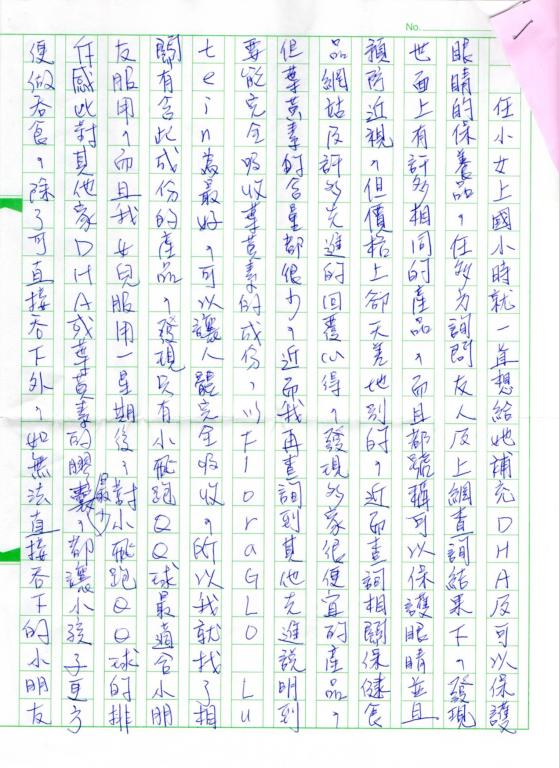 No.
在小女上國小時就一直想給她補充DHA及可以保護
眼睛的保養品，在多方詢問友人及上網查詢結果下，發現
世面上有許多相同的產品，而且都號稱可以保護眼睛並且
預防近視，但價格上卻天差地別的，近而查詢相關保健食
品網站及許多先進的回覆心得，發現多家很便宜的產品，
但葉黃素的含量都很少，近而我再查詢到其他先進說明到
要能完全吸收葉黃素的成份，以FloraGLO Lu
tein為最好，可以讓人體完全吸收，所以我就找了相
關有含此成份的產品，發現只有小飛跑QQ球最適合小朋
友服用，而且我女兒服用一星期後，對小飛跑QQ球的排
斥感比對其他家DHA或葉黃素的膠囊最少，都讓小孩子更方
便做吞食，除了可直接吞下外，如無法直接吞下的小朋友